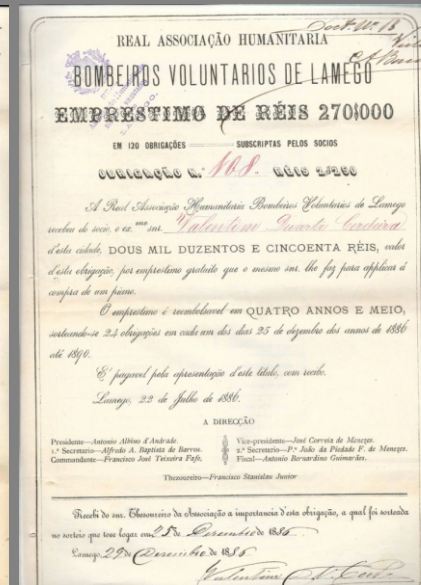 Sort. Nº 16
REAL ASSOCIAÇÃO HUMANITARIA
BOMBEIROS VOLUNTARIOS DE LAMEGO
EMPRESTIMO DE RÉIS 270$000
EM 120 OBRIGAÇÕES SUBSCRIPTAS PELOS SOCIOS
OBRIGAÇÃO N.º 108. RÉIS 2$250
A Real Associação Humanitaria Bombeiros Voluntarios de Lamego
recebeu do socio, o ex.mo snr. Valentim Duarte Cerdeira
d'esta cidade, DOUS MIL DUZENTOS E CINCOENTA RÉIS, valor
d'esta obrigação, por emprestimo gratuito que o mesmo snr. lhe faz para applicar á
compra de um piano.
O emprestimo é reembolsavel em QUATRO ANNOS E MEIO,
sorteando-se 24 obrigações em cada um dos dias 25 de dezembro dos annos de 1886
até 1890.
E' pagavel pela apresentação d'este titulo, com recibo.
Lamego, 22 de Julho de 1886.
A DIRECÇÃO
Presidente—Antonio Albino d'Andrade.
1.º Secretario—Alfredo A. Baptista de Barros.
Commandante—Francisco José Teixeira Fafe.
Vice-presidente—José Correia de Menezes.
2.º Secretario—P.e João da Piedade F. de Menezes.
Fiscal—Antonio Bernardino Guimarães.
Thezoureiro—Francisco Stanislau Junior
Recebi do snr. Thesoureiro da Associação a importancia d'esta obrigação, a qual foi sorteada
no sorteio que teve logar em 25 de Dezembro de 1886
Lamego, 29 de Dezembro de 1886
Valentim